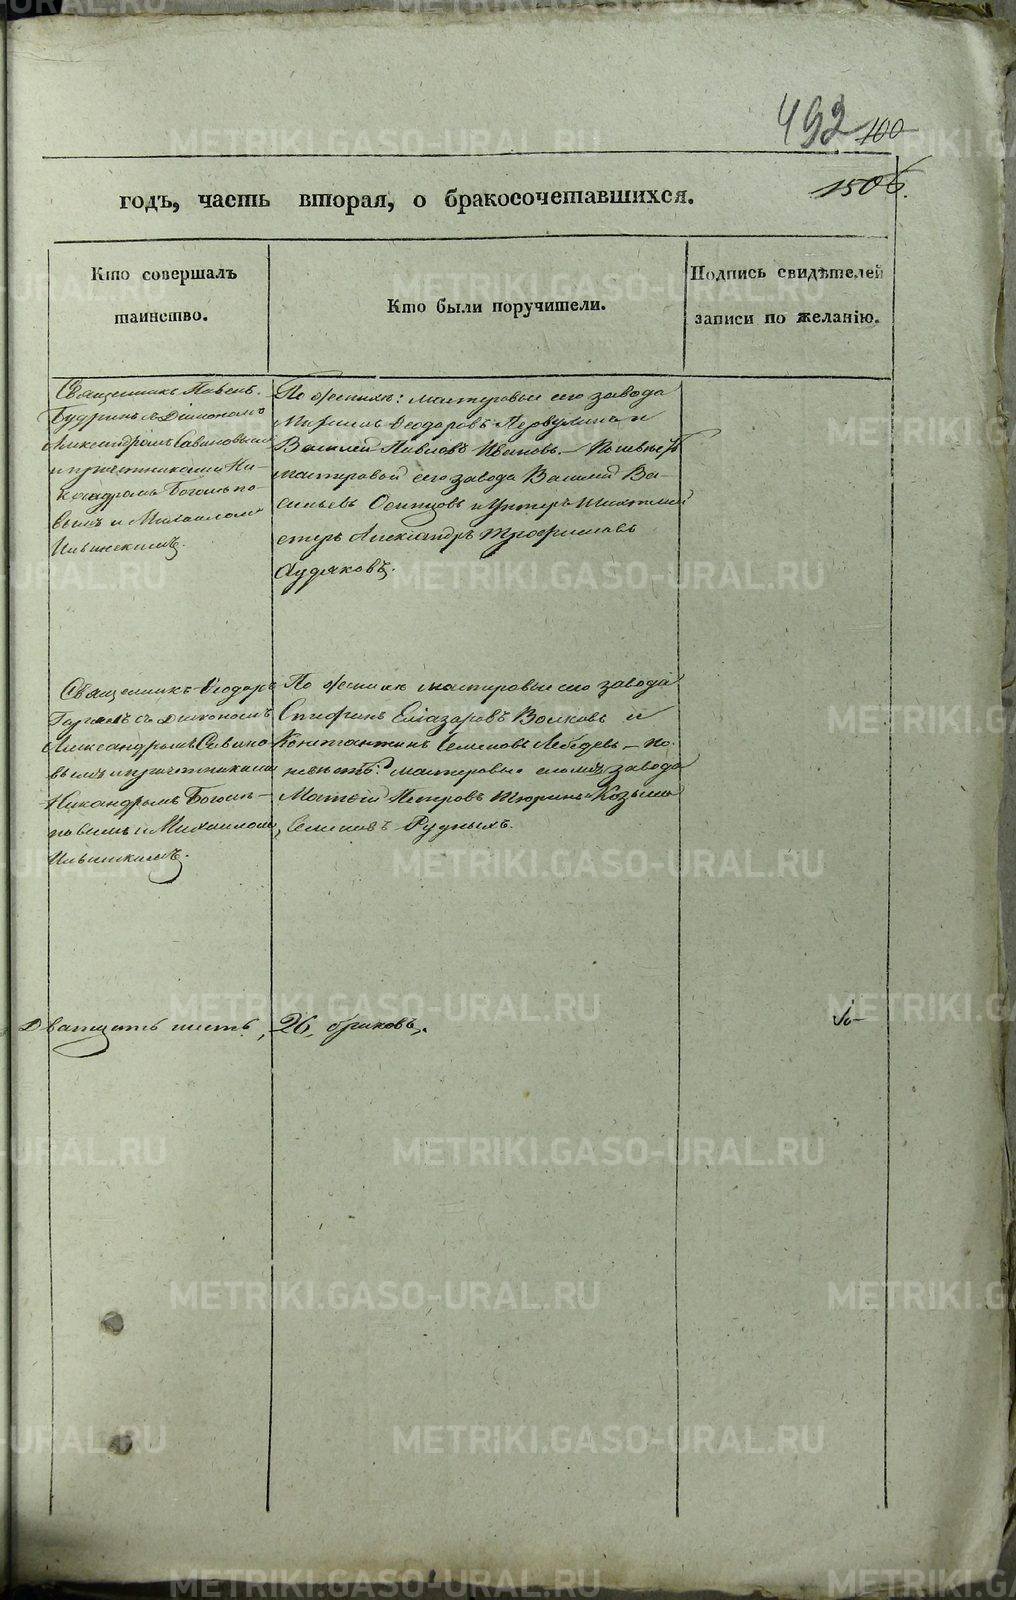 492 100
1506.
годъ, часть вторая, о бракосочетавшихся.
Кто совершалъ
таинство.
Кто были поручители.
Подпись свидѣтелей
записи по желанію.
Священникъ Павелъ
Будринъ съ Діакономъ
Александромъ Савиновымъ
и причетниками Ни-
кандромъ Богомъ по-
вымъ и Михаиломъ
Ильинскимъ.
По женихѣ: мастеровые сего завода
Ѳеодоровъ Первухинъ и
Василій Павловъ Ивановъ. По невѣстѣ
мастеровой сего завода Василій Ва-
сильевъ Осинцовъ и Унтеръ Шихтмей
стеръ Александръ Трофимовъ
Худяковъ.
Священникъ Ѳеодоръ
съ Діакономъ
Александромъ Савино-
вымъ и причетниками
Никандромъ Богомъ-
повымъ и Михаиломъ
Ильинскимъ.
По женихѣ мастеровые сего завода
Стефанъ Еліазаровъ Волковъ и
Константинъ Семеновъ Лебедевъ – по
невѣстѣ: мастеровые завода
Матвей Петровъ Тюринъ и Козьма
Семеновъ Рудныхъ.
Дватцать шесть, 26, браковъ.
METRIKI.GASO-URAL.RU